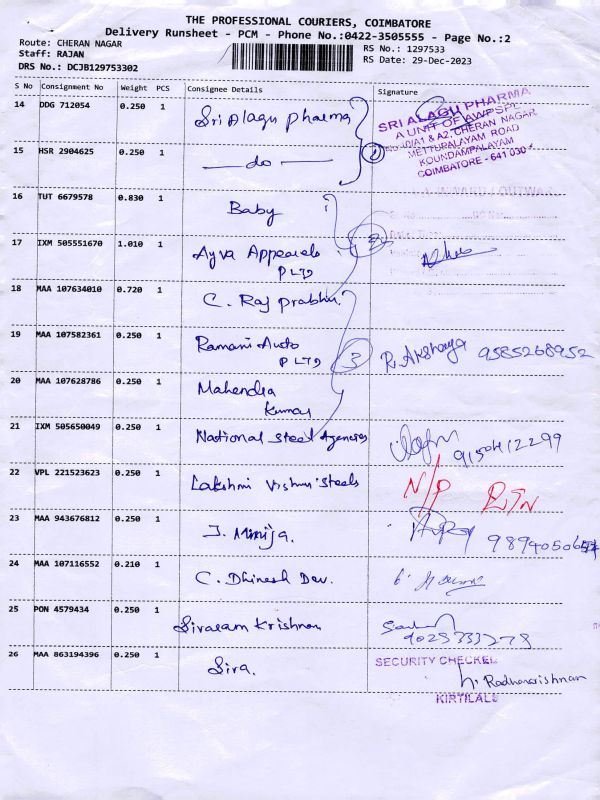 THE PROFESSIONAL COURIERS, COIMBATORE
Delivery Runsheet - PCM - Phone No.:0422-3505555 - Page No.:2
Route: CHERAN NAGAR
RS No.: 1297533
Staff: RAJAN
RS Date: 29-Dec-2023
DRS No.: DCJB129753302
S No Consignment No Weight PCS Consignee Details Signature
14 DDG 712054 0.250 1 Sri Alagu pharma
SRI ALAGU PHARMA
A UNIT OF AWPSPL
& A2, CHERAN NAGAR
METTUPALAYAM ROAD
KOUNDAMPALAYAM
COIMBATORE - 641 030
15 HSR 2904625 0.250 1 — do —
16 TUT 6679578 0.830 1 Baby
17 IXM 505551670 1.010 1 Ayva Appearels
P LTD
2
18 MAA 107634010 0.720 1 C. Raj prabhu.
19 MAA 107582361 0.250 1 Ramani Auto
P LTD
3
R. Akshaya 9585268952
20 MAA 107628786 0.250 1 Mahendra
Kumar
21 IXM 505650049 0.250 1 National steel Agencies
9150412299
22 VPL 221523623 0.250 1 Lakshmi Vishnu Steels N/P RTN
23 MAA 943676812 0.250 1 J. Minija.
24 MAA 107116552 0.210 1 C. Dhinesh Dev.
25 PON 4579434 0.250 1 Sivaram Krishnan
9025333278
26 MAA 863194396 0.250 1 Siva.
SECURITY CHECKED
h. Radhakrishnan
KIRTILALS